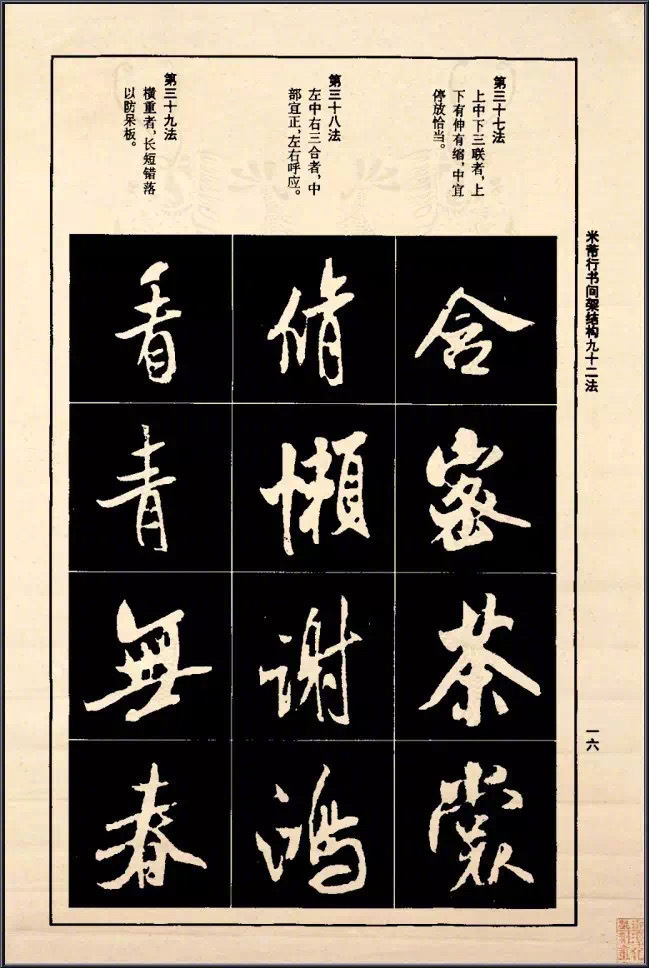 米芾行书间架结构九十二法
第三十七法
上中下三联者，上
下有伸有缩，中宜
停放恰当。
含
密
茶
裳
第三十八法
左中右三合者，中
部宜正，左右呼应。
脩
懒
谢
鸿
第三十九法
横重者，长短错落
以防呆板。
看
青
無
春
一六